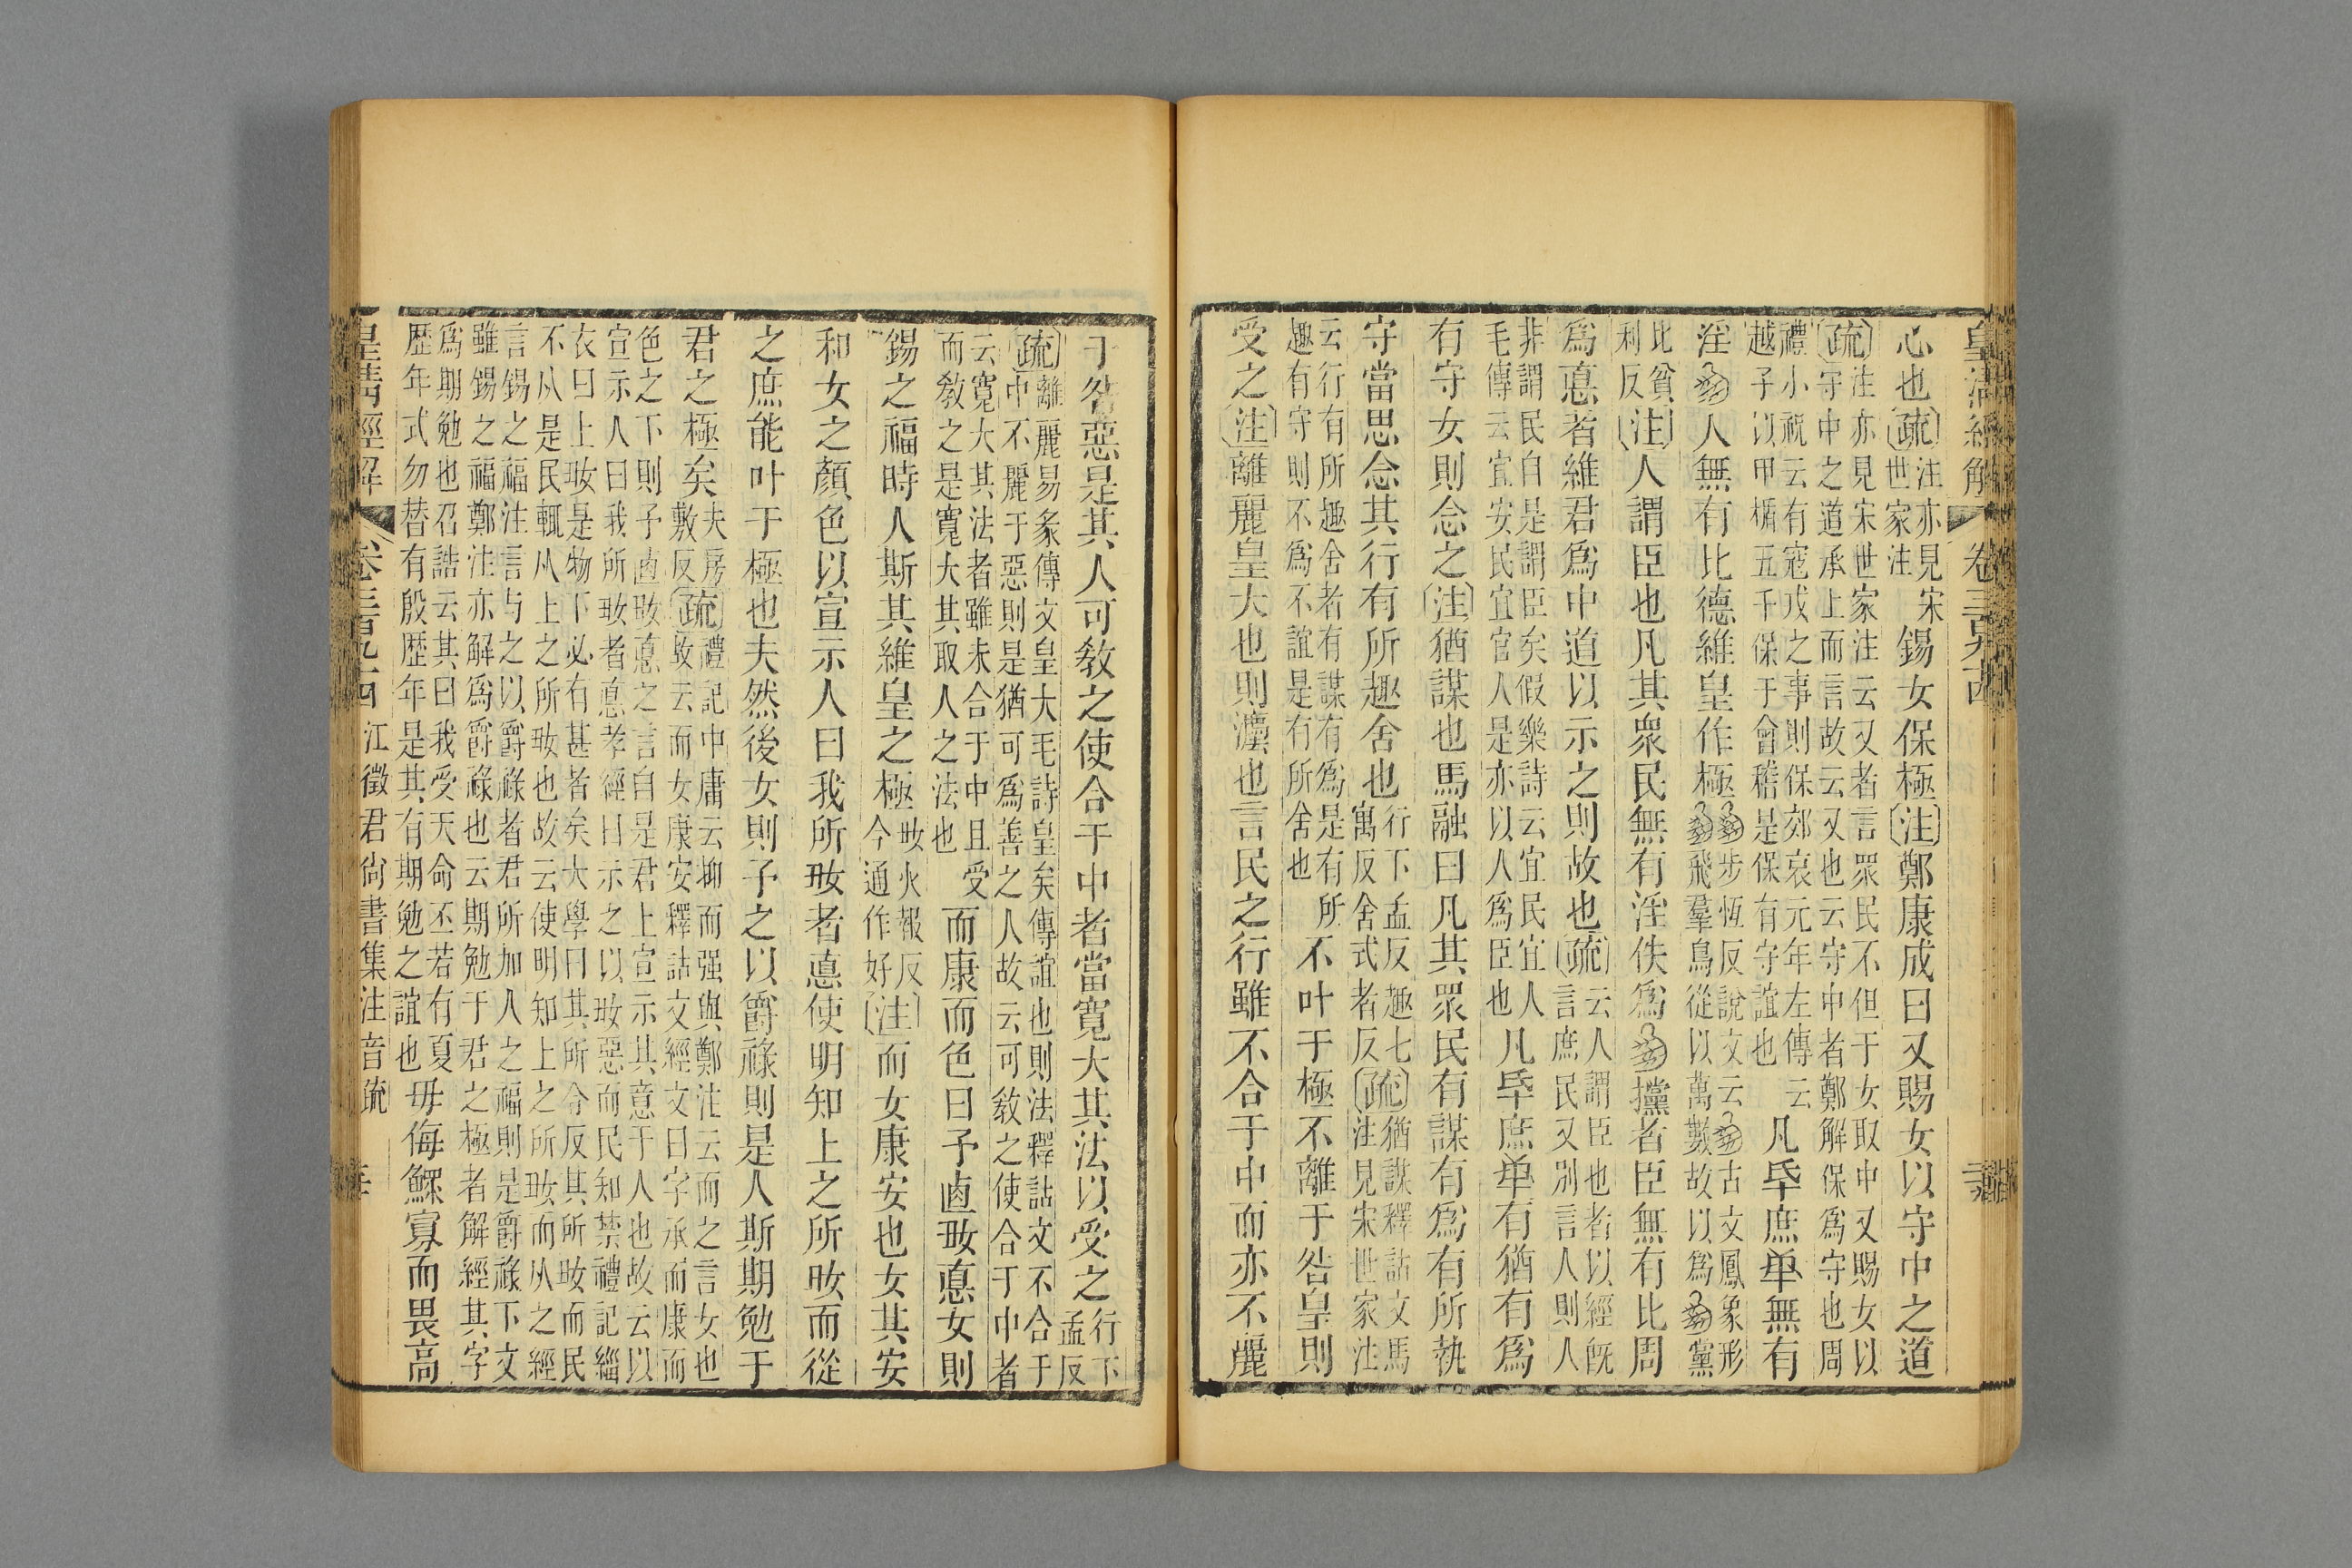 皇清經解
卷三百九十四
心也疏注亦見宋世家注錫女保極注鄭康成曰又賜女以守中之道
疏注亦見宋世家注云又者言眾民不但于女取中又賜女以守中之道承上而言故云又也云守中者鄭解保爲守也周
禮小祝云有寇戎之事則保郊哀元年左傳云越子以甲楯五千保于會稽是保有守誼也凡厈庶单無有
淫人無有比德維皇作極步恆反說文云古文鳳象形飛羣鳥從以萬數故以爲黨
比貧利反注人謂臣也凡其衆民無有淫佚爲攩者臣無有比周
爲悳者維君爲中道以示之則故也疏云人謂臣也者以經旣言庶民又別言人則人
非謂民自是謂臣矣假樂詩云宜民宜人毛傳云宜安民宜官人是亦以人爲臣也凡厈庶单有猶有爲
有守女則念之注猶謀也馬融曰凡其眾民有謀有爲有所執
守當思念其行有所趣舍也行下孟反趣七寓反舍式者反疏猶謀釋詁文馬注見宋世家注
云行有所趣舍者有謀有爲是有所趣有守則不爲不誼是有所舍也不叶于極不離于咎皇則
受之注離麗皇大也則灋也言民之行雖不合于中而亦不麗
于咎惡是其人可敎之使合于中者當寬大其法以受之行下孟反
疏離麗易彖傳文皇大毛詩皇矣傳誼也則法釋詁文不合于中不麗于惡則是猶可爲善之人故云可敎之使合于中者
云寬大其法者雖未合于中且受而敎之是寬大其取人之法也而康而色曰予卣攼悳女則
錫之福時人斯其維皇之極攼火報反今通作好注而女康安也女其安
和女之顏色以宣示人曰我所攼者悳使明知上之所攼而從
之庶能叶于極也夫然後女則予之以爵祿則是人斯期勉于
君之極矣夫房敷反疏禮記中庸云抑而强與鄭注云而之言女也故云而女康安釋詁文經文曰字承而康而
色之下則予卣攼悳之言自是君上宣示其意于人也故云以宣示人曰我所攼者悳孝經曰示之以攼惡而民知禁禮記緇
衣曰上攼是物下必有甚者矣大學曰其所令反其所攼而民不从是民輒从上之所攼也故云使明知上之所攼而从之經
言錫之福注言与之以爵祿者君所加人之福則是爵祿下文雖錫之福鄭注亦解爲爵祿也云期勉于君之極者解經其字
爲期勉也召誥云其曰我受天命丕若有夏歷年式勿替有殷歷年是其有期勉之誼也毋侮鰥寡而畏高
皇清經解
卷三百九十四
江徵君尙書集注音疏